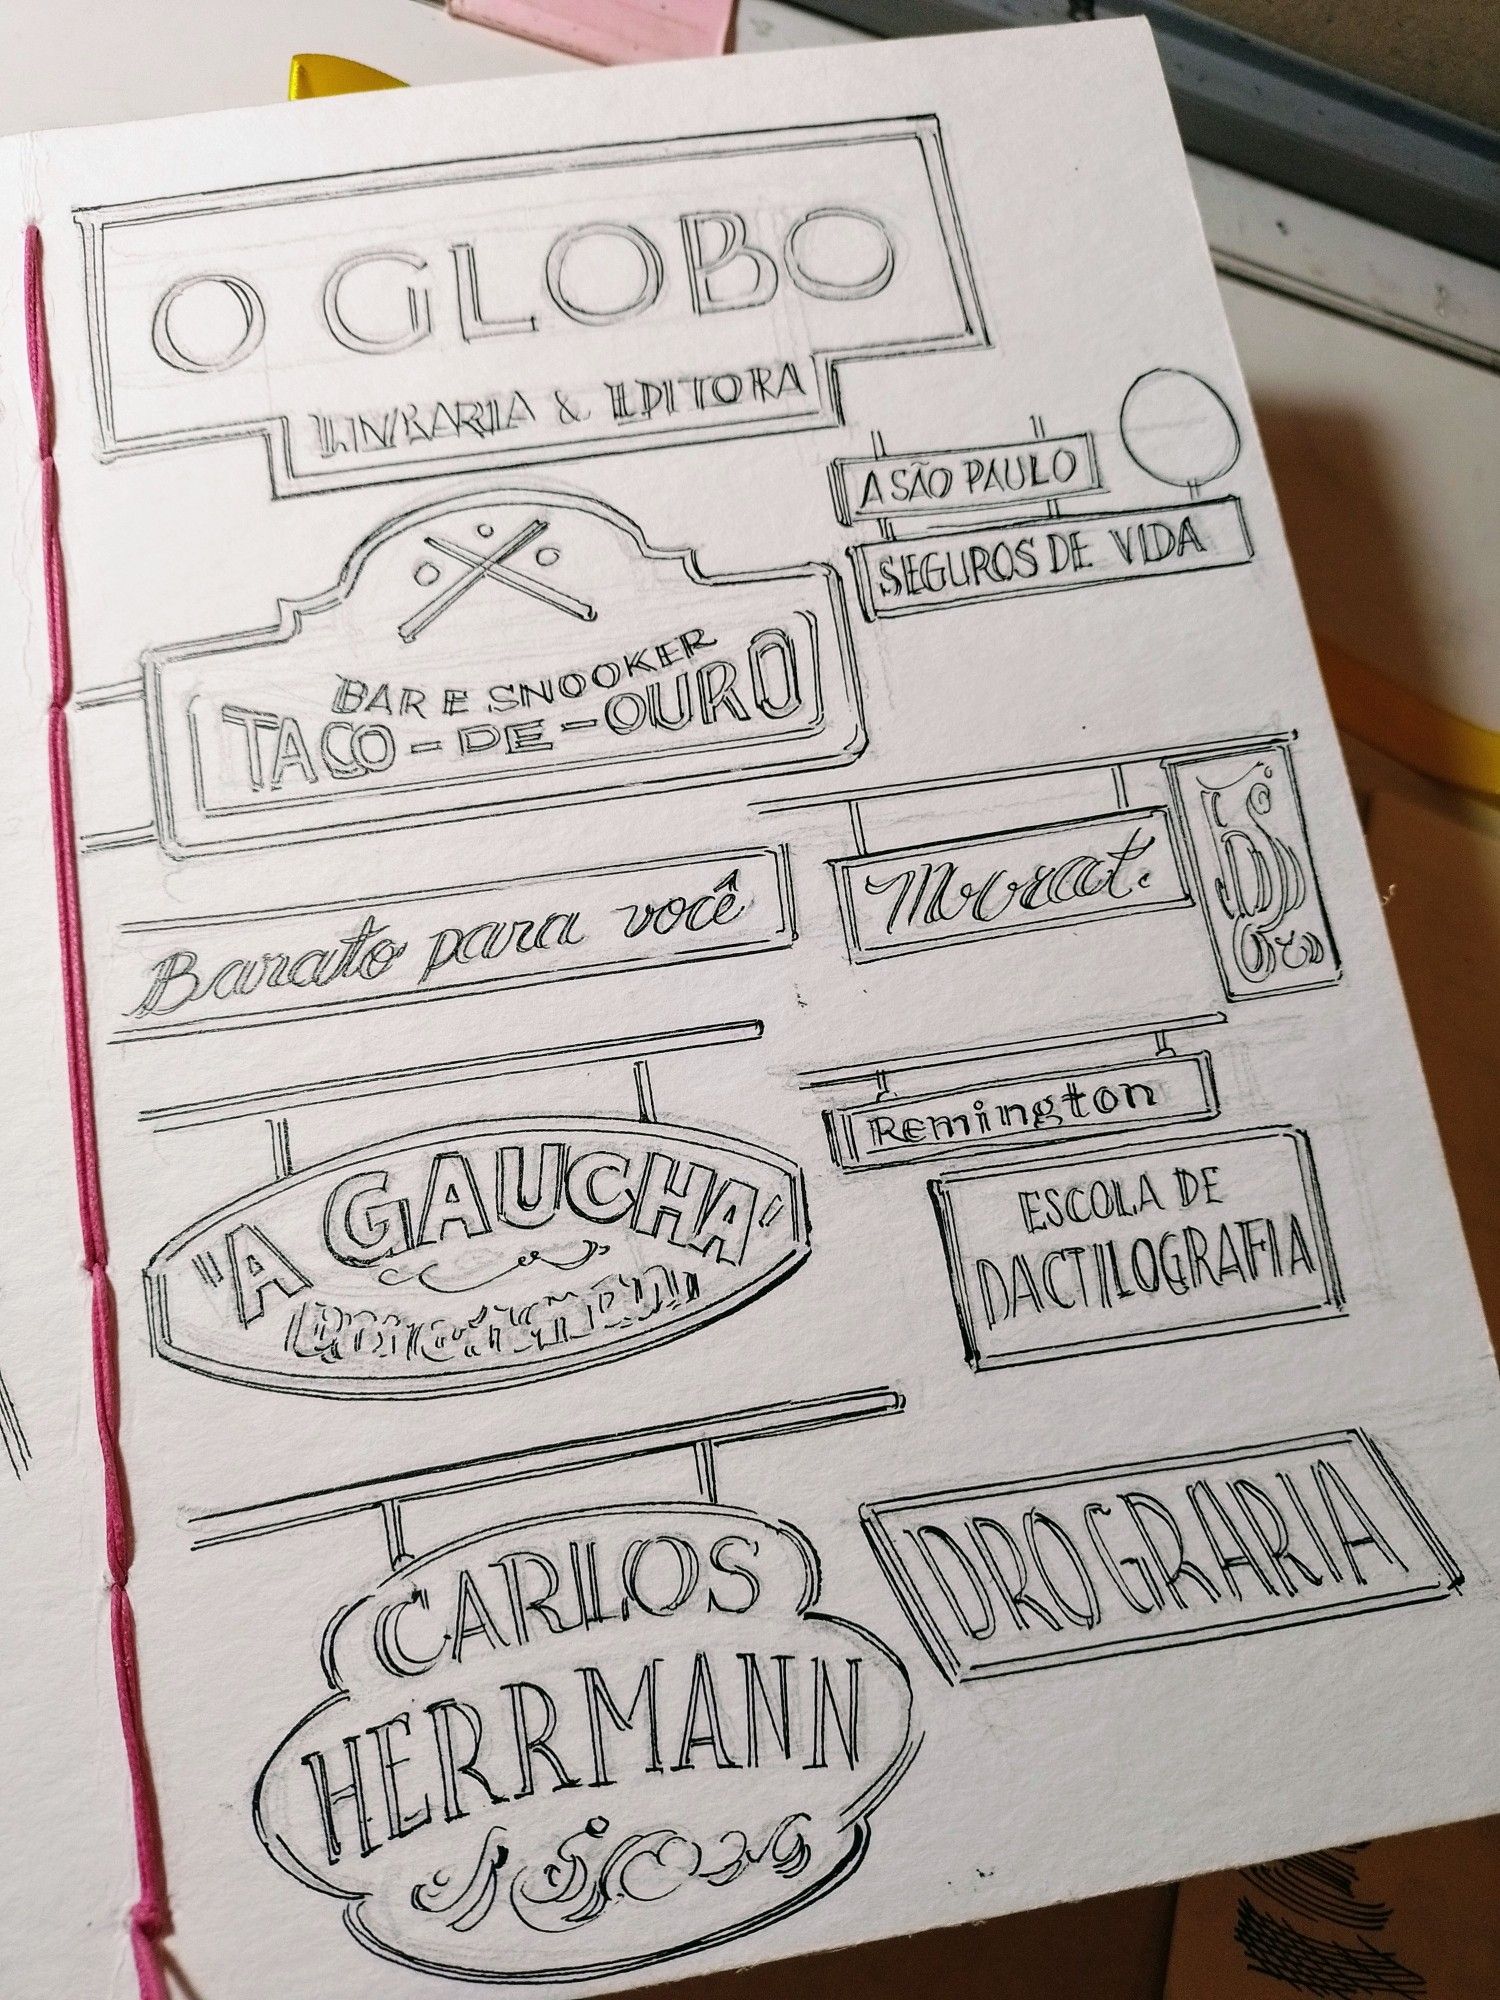 O GLOBO
LIVRARIA & EDITORA
A SÃO PAULO
SEGUROS DE VIDA
BAR E SNOOKER
TACO-DE-OURO
Barato para você
Remington
ESCOLA DE
DACTILOGRAFIA
"A GAUCHA"
CARLOS
HERRMANN
DROGRARIA